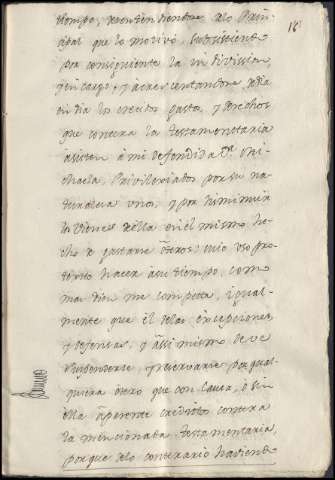 18
tiempo, desentendiendose alo Prin-
cipal que lo motivó, subsistiendo
por consiguiente la indivission,
y en cargo, y acrescentandose de dia
en dia los crecidos gastos, y derechos
que contra la testamentaria
asisten á mi defendida D.ª Mi-
chaela, Privilexiados por su na-
turaleza unos, y por disminuir
los vienes de ella en el mismo he-
cho de gastarse otros; cuio uso pro-
texto hacer á su tiempo, como
mas bien me competa, igual-
mente que el delas excepciones,
y defensas, y assi mismo deve
suspenderse, y reservarse por qual-
quiera otro que con causa, ó sin
ella aparente credito contra
la mencionada testamentaria,
porque delo contrario haviendo